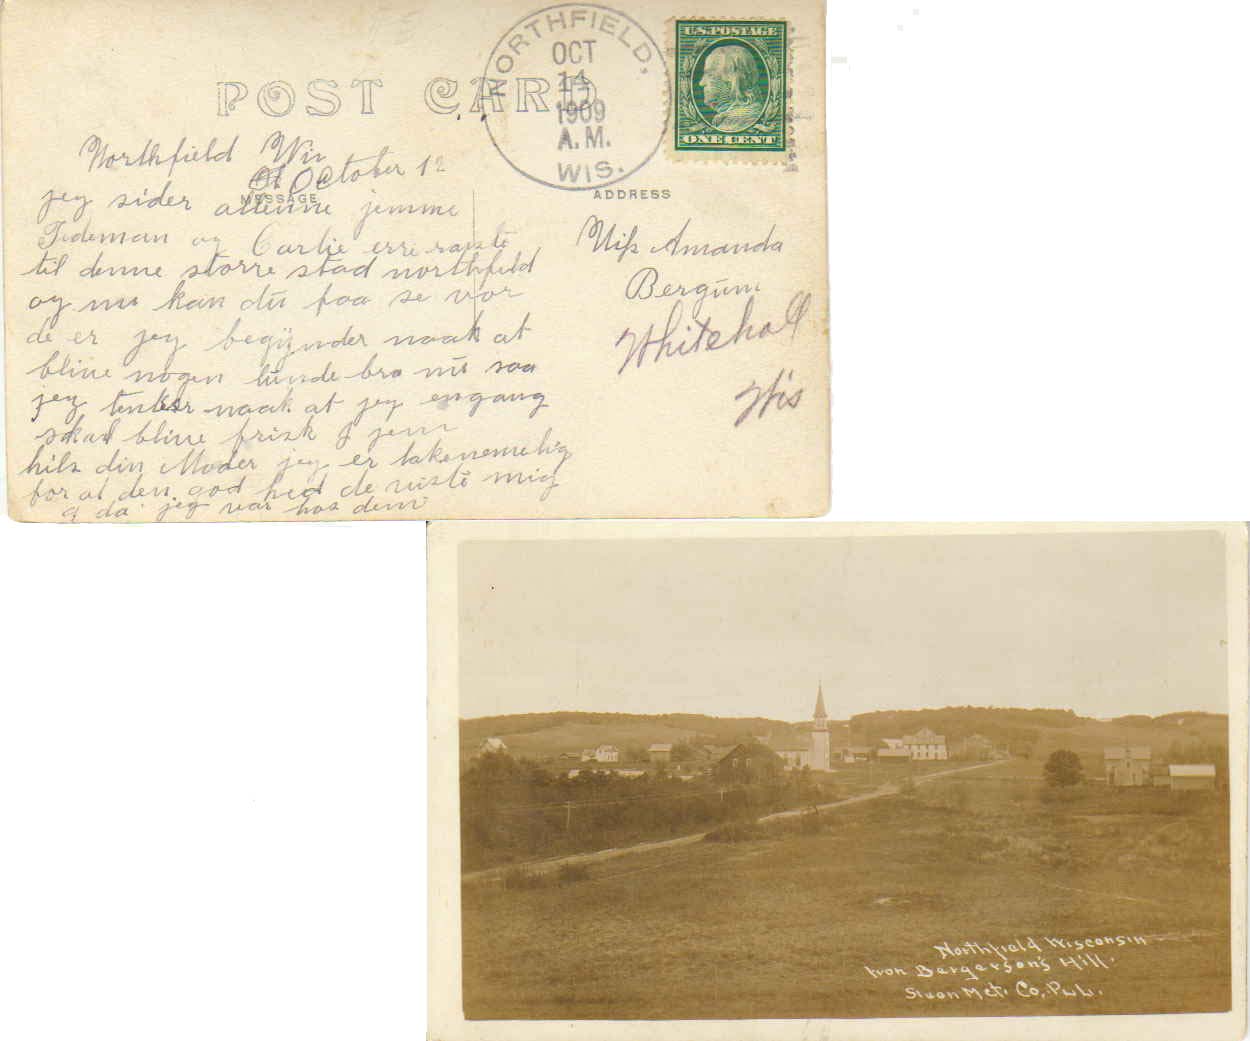 POST CARD
NORTHFIELD,
OCT
14
1909
A.M.
WIS.
U.S. POSTAGE
ONE CENT
Northfield Wis
October 12
MESSAGE
ADDRESS
jeg sider allenne jemme
Tedeman og Carlie erre raiste
til denne storre stad northfield
og nu kan du faa se vor
de er jeg begijnder naak at
bline nogen lunde bra nu saa
jeg tenker naak at jeg engang
skal bline frisk I jenn
hils din Moder jeg er takenemelig
for al den god hed de viste mig
da jeg var hos dem
Miss Amanda
Bergum
Whitehall
Wis
Northfield Wisconsin
from Bergerson's Hill.
Co. Pub.